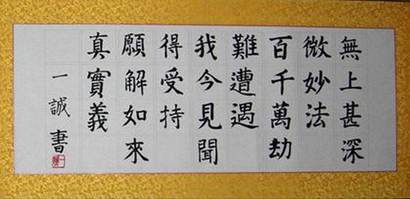 無上甚深
微妙法
百千萬劫
難遭遇
我今見聞
得受持
願解如來
真實義
一誠書